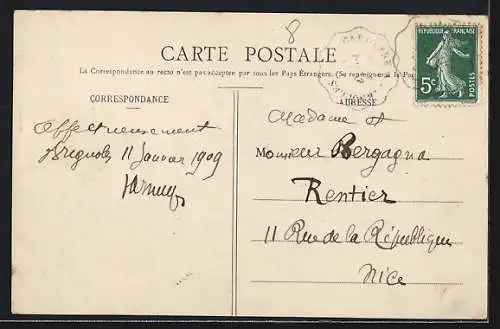 8
CARTE POSTALE
La Correspondance au recto n'est pas acceptée par tous les Pays Étrangers. (Se renseigner à la Po
RÉPUBLIQUE FRANÇAISE
5c
POSTES
CORRESPONDANCE
ADRESSE
Affectueusement
Brignoles 11 Janvier 1909
Madame et
Monsieur Bergagna
Rentier
11 Rue de la République
Nice